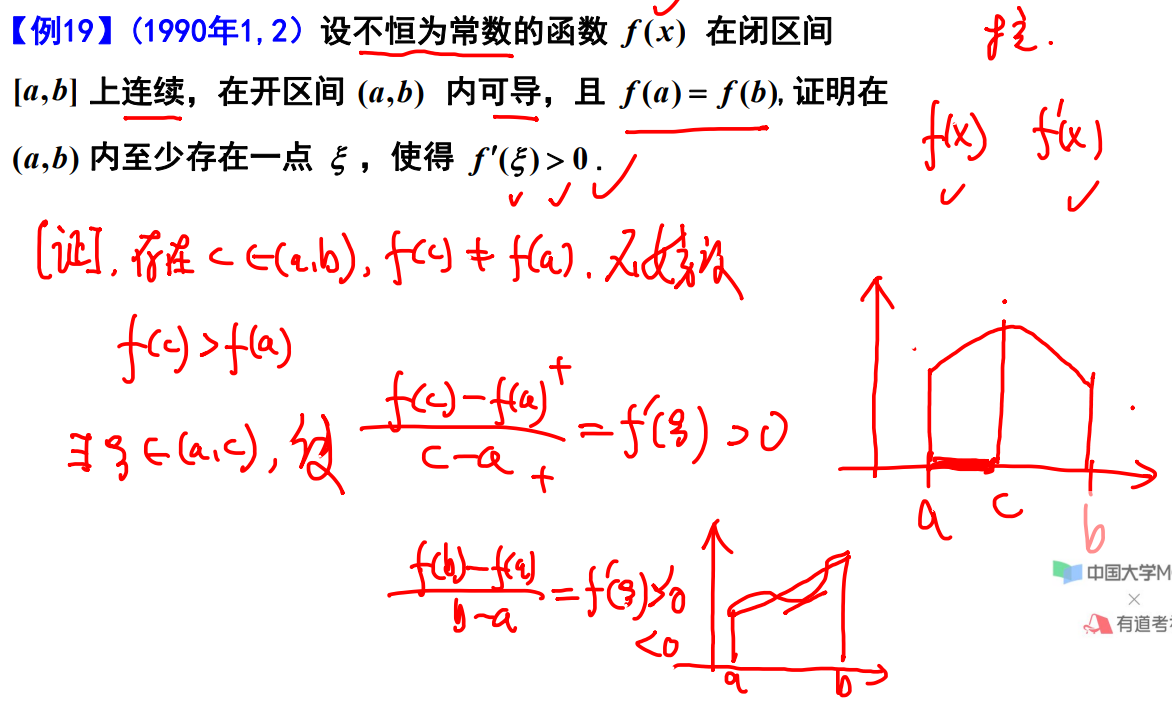 【例19】(1990年1,2) 设不恒为常数的函数 f(x) 在闭区间
[a,b] 上连续，在开区间 (a,b) 内可导，且 f(a) = f(b), 证明在
(a,b) 内至少存在一点 ξ，使得 f′(ξ) > 0.
拉.
f(x) f′(x)
[证], 存在 c∈(a,b), f(c) ≠ f(a). 不妨设
f(c) > f(a)
∃ξ∈(a,c), 使 (f(c)-f(a))/(c-a) = f′(ξ) > 0
+
+
a c b
(f(b)-f(a))/(b-a) = f′(ξ) > 0
<0
a b
中国大学M
×
有道考